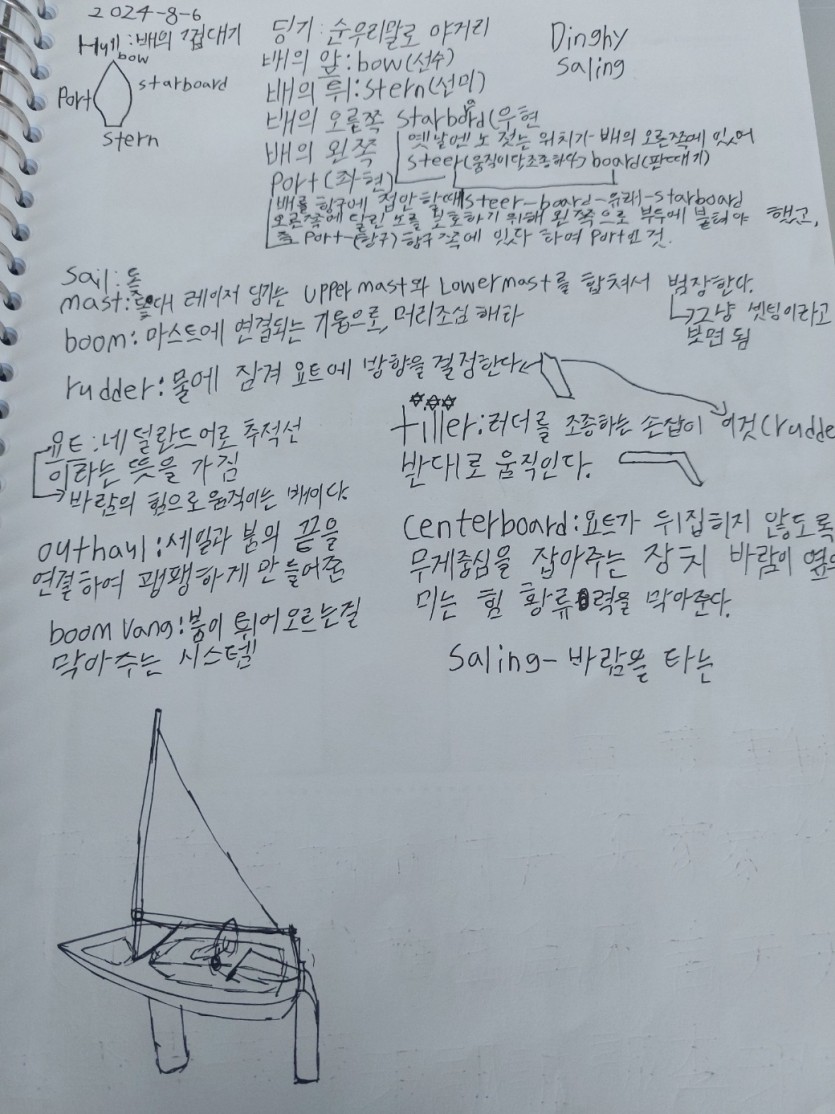 2024-8-6
Hull:배의 껍대기
bow
Port
starboard
stern
딩기:순우리말로 야거리
배의 앞:bow(선수)
배의 뒤:stern(선미)
배의 오른쪽 starboard(우현
배의 왼쪽
Port(좌현)
Dinghy
Saling
옛날엔 노 젓는 위치가 배의 오른쪽에 있어
steer(움직이다,조종하다) board(판때기)
steer-board-유래-starboard
배를 항구에 접안 할때
오른쪽에 달린 노를 보호하기 위해 왼쪽으로 부두에 붙혀야 했고,
즉 Port-(항구) 항구 쪽에 있다 하여 Port인 것.
Sail:돛
mast:돛대 레이저 딩기는 Upper mast와 Lower mast를 합쳐서 범장한다.
그냥 셋팅이라고
보면 됨
boom:마스트에 연결되는 기둥으로, 머리조심 해라
rudder:물에 잠겨 요트에 방향을 결정한다
요트:네덜란드어로 추적선
이라는 뜻을 가짐
바람의 힘으로 움직이는 배이다.
outhaul:세일과 붐의 끝을
연결하여 팽팽하게 만들어준
boom vang:붐이 튀어오르는걸
막아주는 시스템
tiller:러더를 조종하는 손잡이 이것(rudder
반대로 움직인다.
centerboard:요트가 뒤집히지 않도록
무게중심을 잡아주는 장치 바람이 옆으
미는 힘 횡류력을 막아준다.
Saling-바람을 타는